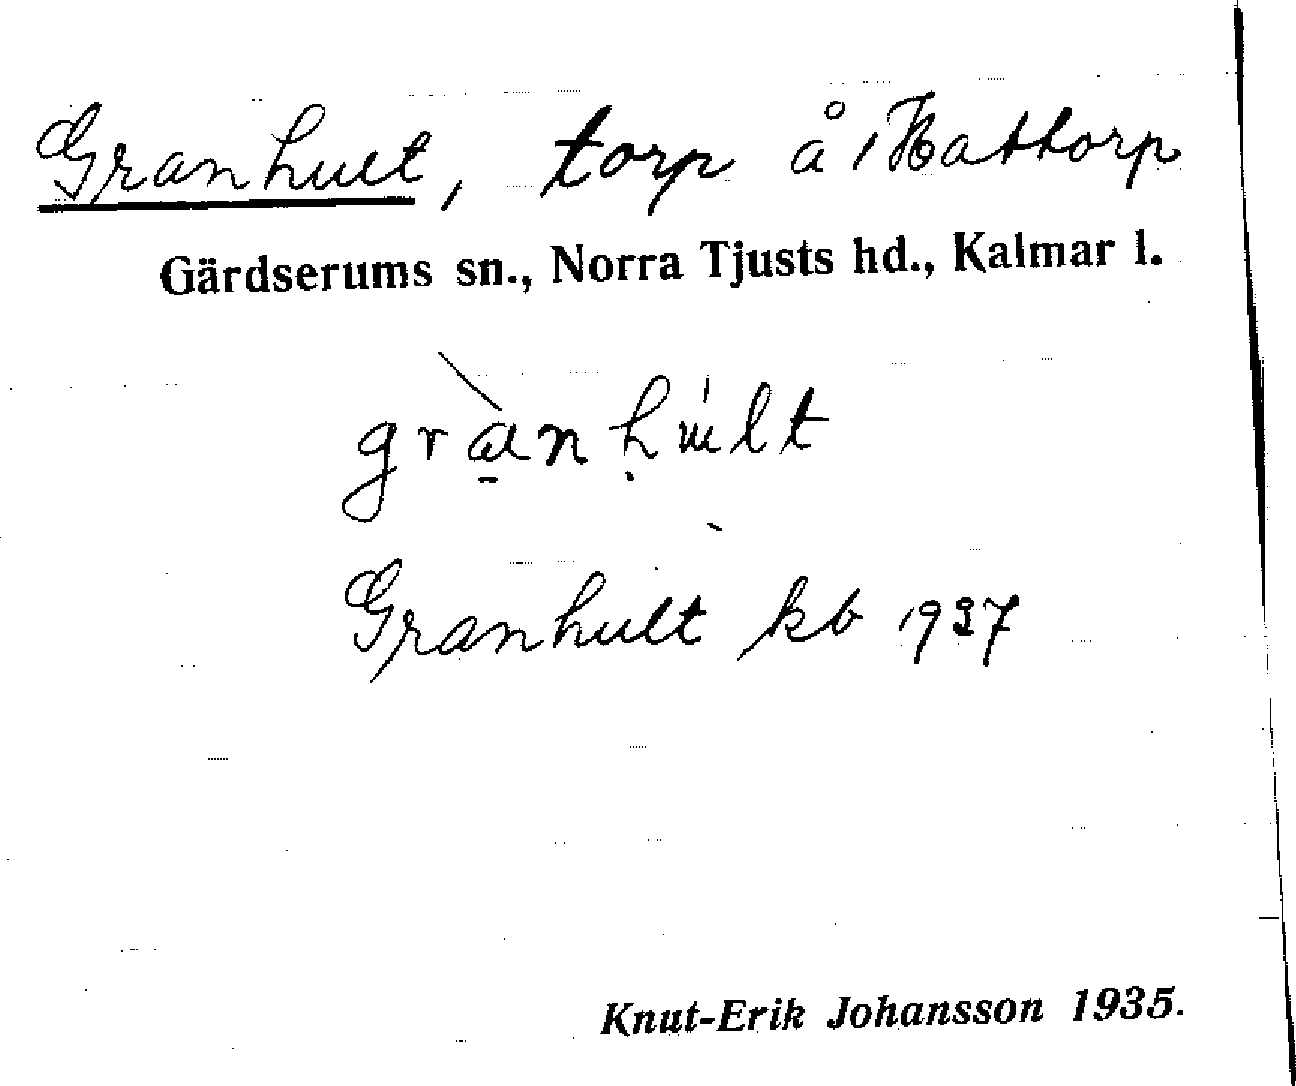 Granhult, torp å Hattorp
Gärdserums sn., Norra Tjusts hd., Kalmar l.
grànhult
Granhult kb 1937
Knut-Erik Johansson 1935.